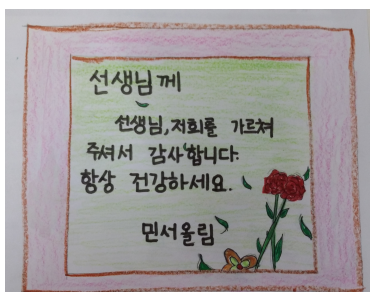 선생님께
선생님, 저희를 가르쳐
주셔서 감사합니다.
항상 건강하세요.
민서올림